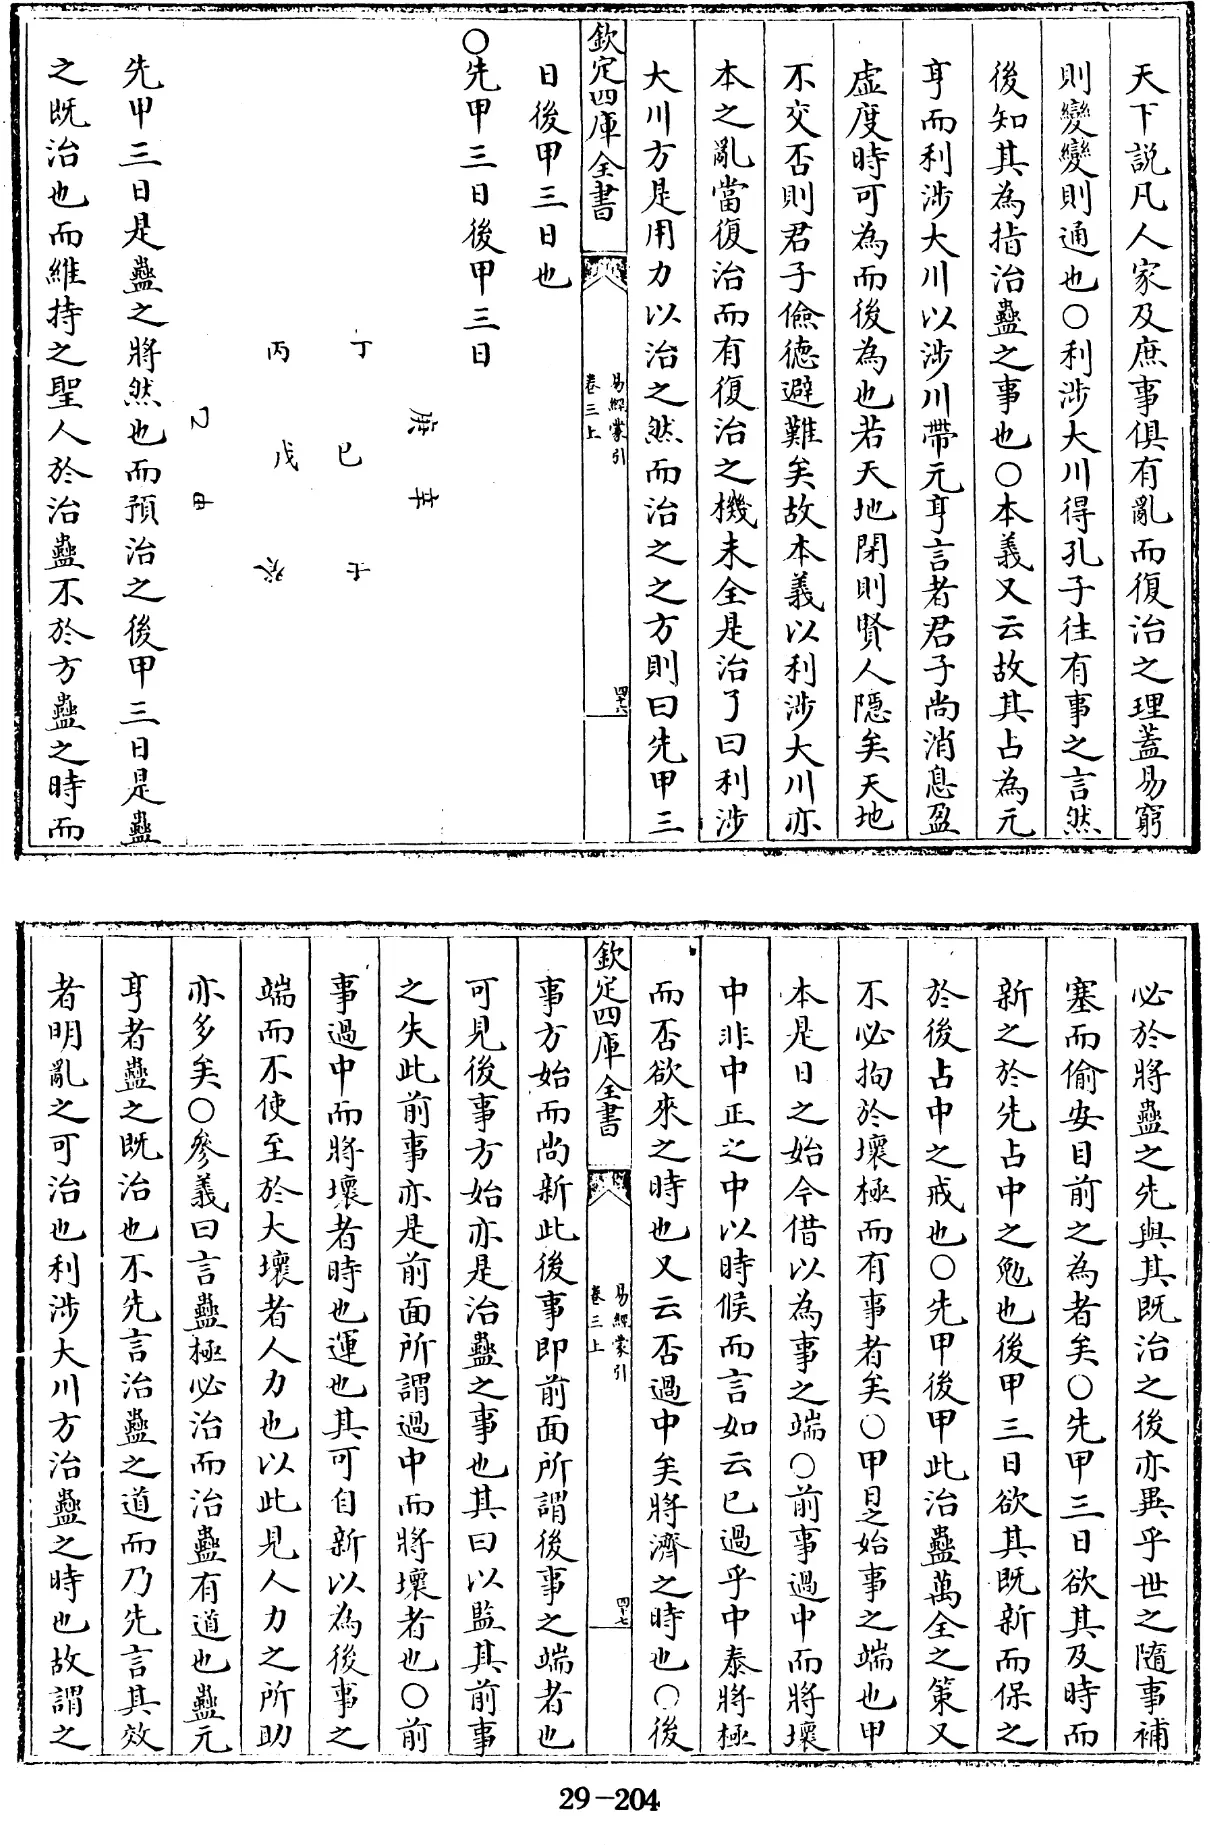 天下説凡人家及庶事俱有亂而復治之理蓋易窮
則變變則通也○利涉大川得孔子往有事之言然
後知其為指治蠱之事也○本義又云故其占為元
亨而利涉大川以涉川帶元亨言者君子尚消息盈
虛度時可為而後為也若天地閉則賢人隱矣天地
不交否則君子儉德避難矣故本義以利涉大川亦
本之亂當復治而有復治之機未全是治了曰利涉
大川方是用力以治之然而治之之方則曰先甲三
欽定四庫全書
易經蒙引
卷三上
四十六
日後甲三日也
○先甲三日後甲三日
丁
丙
庚
乙
己
戊
辛
甲
壬
癸
先甲三日是蠱之將然也而預治之後甲三日是蠱
之既治也而維持之聖人於治蠱不於方蠱之時而
必於將蠱之先與其既治之後亦異乎世之隨事補
塞而偷安目前之為者矣○先甲三日欲其及時而
新之於先占中之勉也後甲三日欲其既新而保之
於後占中之戒也○先甲後甲此治蠱萬全之策又
不必拘於壞極而有事者矣○甲日之始事之端也甲
本是日之始今借以為事之端○前事過中而將壞
中非中正之中以時候而言如云已過乎中泰將極
而否欲來之時也又云否過中矣將濟之時也○後
欽定四庫全書
易經蒙引
卷三上
四十七
事方始而尚新此後事即前面所謂後事之端者也
可見後事方始亦是治蠱之事也其曰以監其前事
之失此前事亦是前面所謂過中而將壞者也○前
事過中而將壞者時也運也其可自新以為後事之
端而不使至於大壞者人力也以此見人力之所助
亦多矣○參義曰言蠱極必治而治蠱有道也蠱元
亨者蠱之既治也不先言治蠱之道而乃先言其效
者明亂之可治也利涉大川方治蠱之時也故謂之
29-204